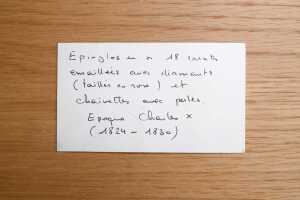 Épingles en or 18 carats
émaillées avec diamants
(tailles en rose) et
chaînettes avec perles.
Epoque Charles X
(1824 - 1830)